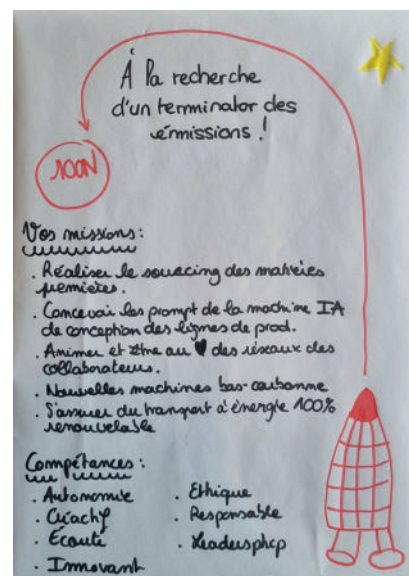 À la recherche
d'un terminator des
émissions !
100N
Vos missions :
. Réaliser le sourcing des matières
premières.
. Concevoir les prompt de la machine IA
de conception des lignes de prod.
. Animer et être au ♥ des réseaux des
collaborateurs.
. Nouvelles machines bas-carbonne
. S'assurer du transport à énergie 100%
renouvelable
Compétances :
. Autonomie
. Créatif
. Écoute
. Innovant
. Ethique
. Responsable
. Leadership